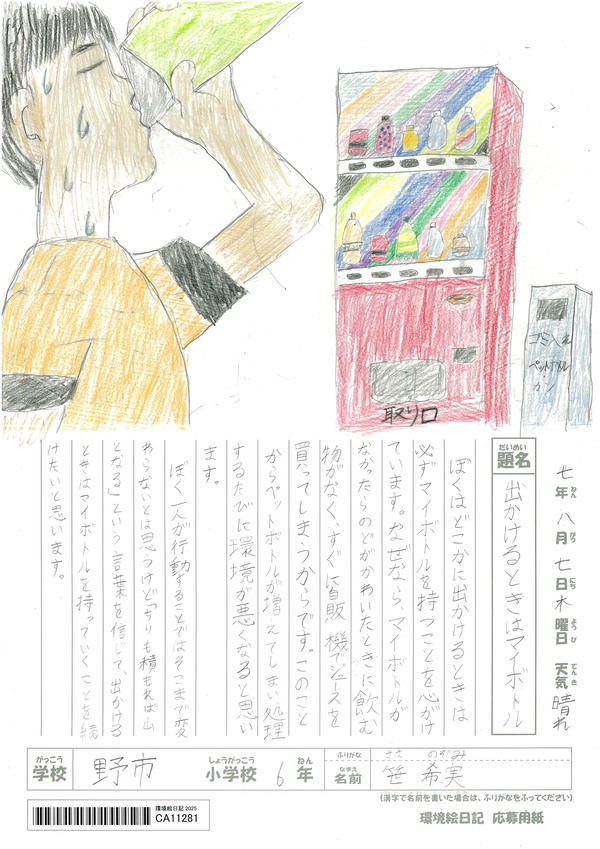 ゴミ入れ
ペットボトル
・
カン
取り口
七年ねん八月がつ七日にち木曜日ようび天気てんき晴れ
題名だいめい
出かけるときはマイボトル
ぼくはどこかに出かけるときは
必ずマイボトルを持つことを心がけ
ています。なぜなら、マイボトルが
なかったらのどがかわいたときに飲む
物がなく、すぐに自販機でジュースを
買ってしまうからです。このこと
からペットボトルが増えてしまい処理
するたびに環境が悪くなると思い
ます。
ぼく一人が行動することではそこまで変
わらないとは思うけど「ちりも積もれば山
となる」という言葉を信じて、出かける
ときはマイボトルを持っていくことを続
けたいと思います。
がっこう しょうがっこう ねん ふりがな ささ のぞみ
学校 野市 小学校 6 年 なまえ 名前 笹 希実
(漢字で名前を書いた場合は、ふりがなをふってください)
環境絵日記 2025
CA11281
環境絵日記 応募用紙